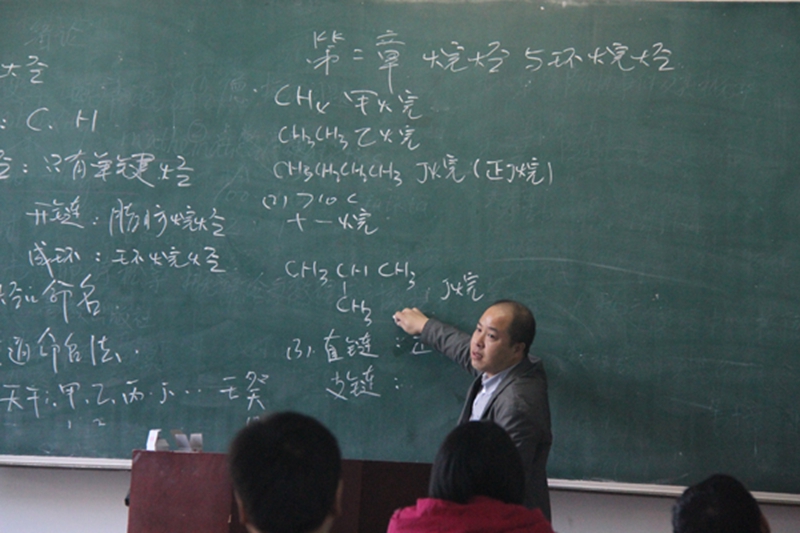 第二章 烷烃与环烷烃
CH4 甲烷
CH3CH3 乙烷
CH3CH2CH2CH3 丁烷(正丁烷)
(2) >10 C
十一烷
CH3 CH CH3
CH3
丁烷
(3).直链:正
支链:
烃
:C、H
:只有单键烃
开链:脂肪烷烃
成环:环烷烃
命名
通命名法、
天干:甲.乙.丙.丁…壬癸
1 2